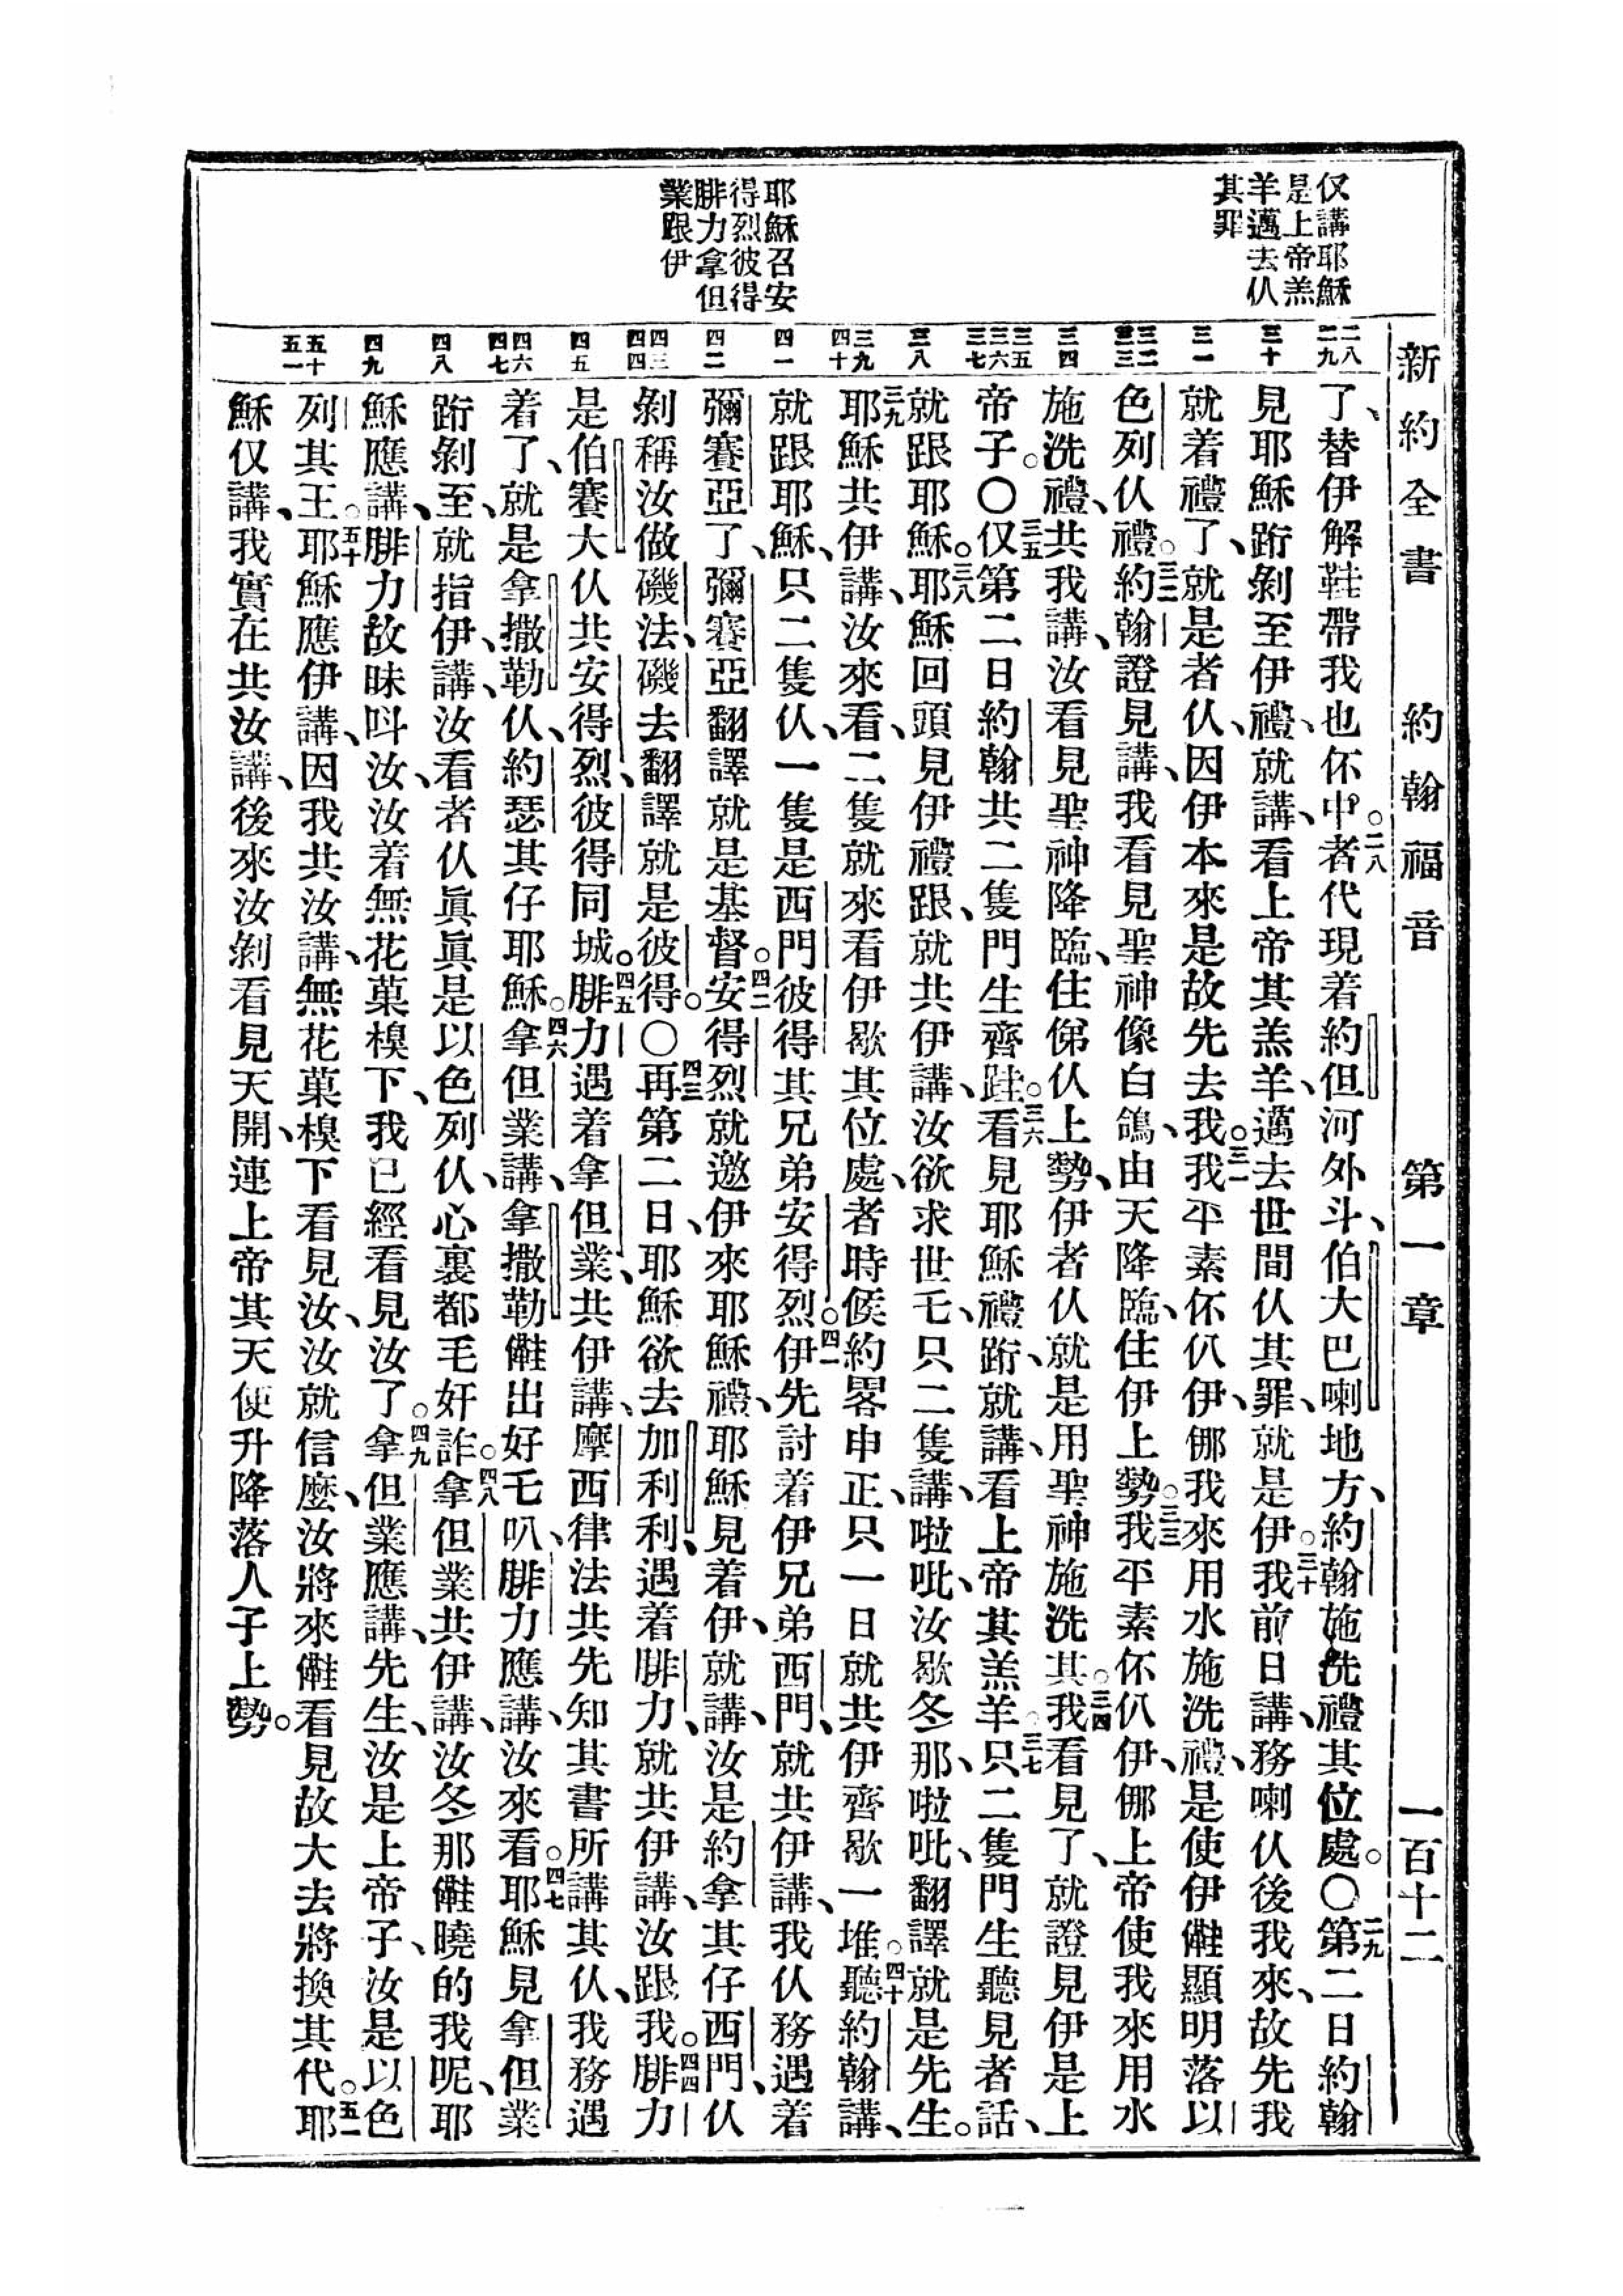 新約全書 約翰福音 第一章 一百十二
仅講耶穌
是上帝羔
羊邁去仈
其罪
耶穌召安
得烈彼得
腓力拿但
業跟伊
二八 二九 三十 三一 三二 三三 三四 三五 三六 三七 三八 三九 四十 四一 四二 四三 四四 四五 四六 四七 四八 四九 五十 五一
了、替伊解鞋帶我也伓中。二八者代現着約但河外斗、伯大巴喇地方、約翰施洗禮其位處。〇二九第二日約翰
見耶穌跡剝至伊禮、就講、看上帝其羔羊、邁去世間仈其罪、就是伊。三十我前日講、務喇仈後我來、故先我
就着禮了、就是者仈、因伊本來是故先去我。三一我平素伓仈伊、㑚我來用水施洗禮、是使伊㒁顯明落以
色列仈禮。三二約翰證見講、我看見聖神像白鴿、由天降臨、住伊上勢。三三我平素伓仈伊、㑚上帝使我來用水
施洗禮、共我講、汝看見聖神降臨、住俤仈上勢、伊者仈就是用聖神施洗其。三四我看見了、就證見伊是上
帝子。〇三五仅第二日約翰共二隻門生齊跬。三六看見耶穌禮跡、就講、看上帝其羔羊。三七只二隻門生聽見者話、
就跟耶穌。三八耶穌回頭、見伊禮跟、就共伊講、汝欲求世乇、只二隻講、啦吡、汝歇冬那、啦吡、翻譯就是先生。
三九耶穌共伊講、汝來看、二隻就來看伊歇其位處、者時候約畧申正、只一日就共伊齊歇一堆。四十聽約翰講、
就跟耶穌、只二隻仈、一隻是西門彼得其兄弟安得烈。四一伊先討着伊兄弟西門、就共伊講、我仈務遇着
彌賽亞了、彌賽亞翻譯就是基督。四二安得烈就邀伊來耶穌禮、耶穌見着伊、就講、汝是約拿其仔西門、仈
剝稱汝做磯法、磯去翻譯就是彼得。〇四三再第二日、耶穌欲去加利利、遇着腓力、就共伊講、汝跟我。四四腓力
是伯賽大仈共安得烈、彼得同城。四五腓力遇着拿但業、共伊講、摩西律法共先知其書所講其仈、我務遇
着了、就是拿撒勒仈、約瑟其仔耶穌。四六拿但業講、拿撒勒㒁出好乇叭、腓力應講、汝來看。四七耶穌見拿但業
跡剝至、就指伊講、汝看者仈眞眞是以色列仈、心裏都毛奸詐。四八拿但業共伊講、汝冬那㒁曉的我呢、耶
穌應講、腓力故昧呌汝、汝着無花菓樣下、我已經看見汝了。四九拿但業應講、先生、汝是上帝子、汝是以色
列其王。五十耶穌應伊講、因我共汝講、無花菓樣下看見汝、汝就信麽、汝將來㒁看見故大去將換其代。五一耶
穌仅講、我實在共汝講、後來汝剝看見天開、連上帝其天使升降落人子上勢。